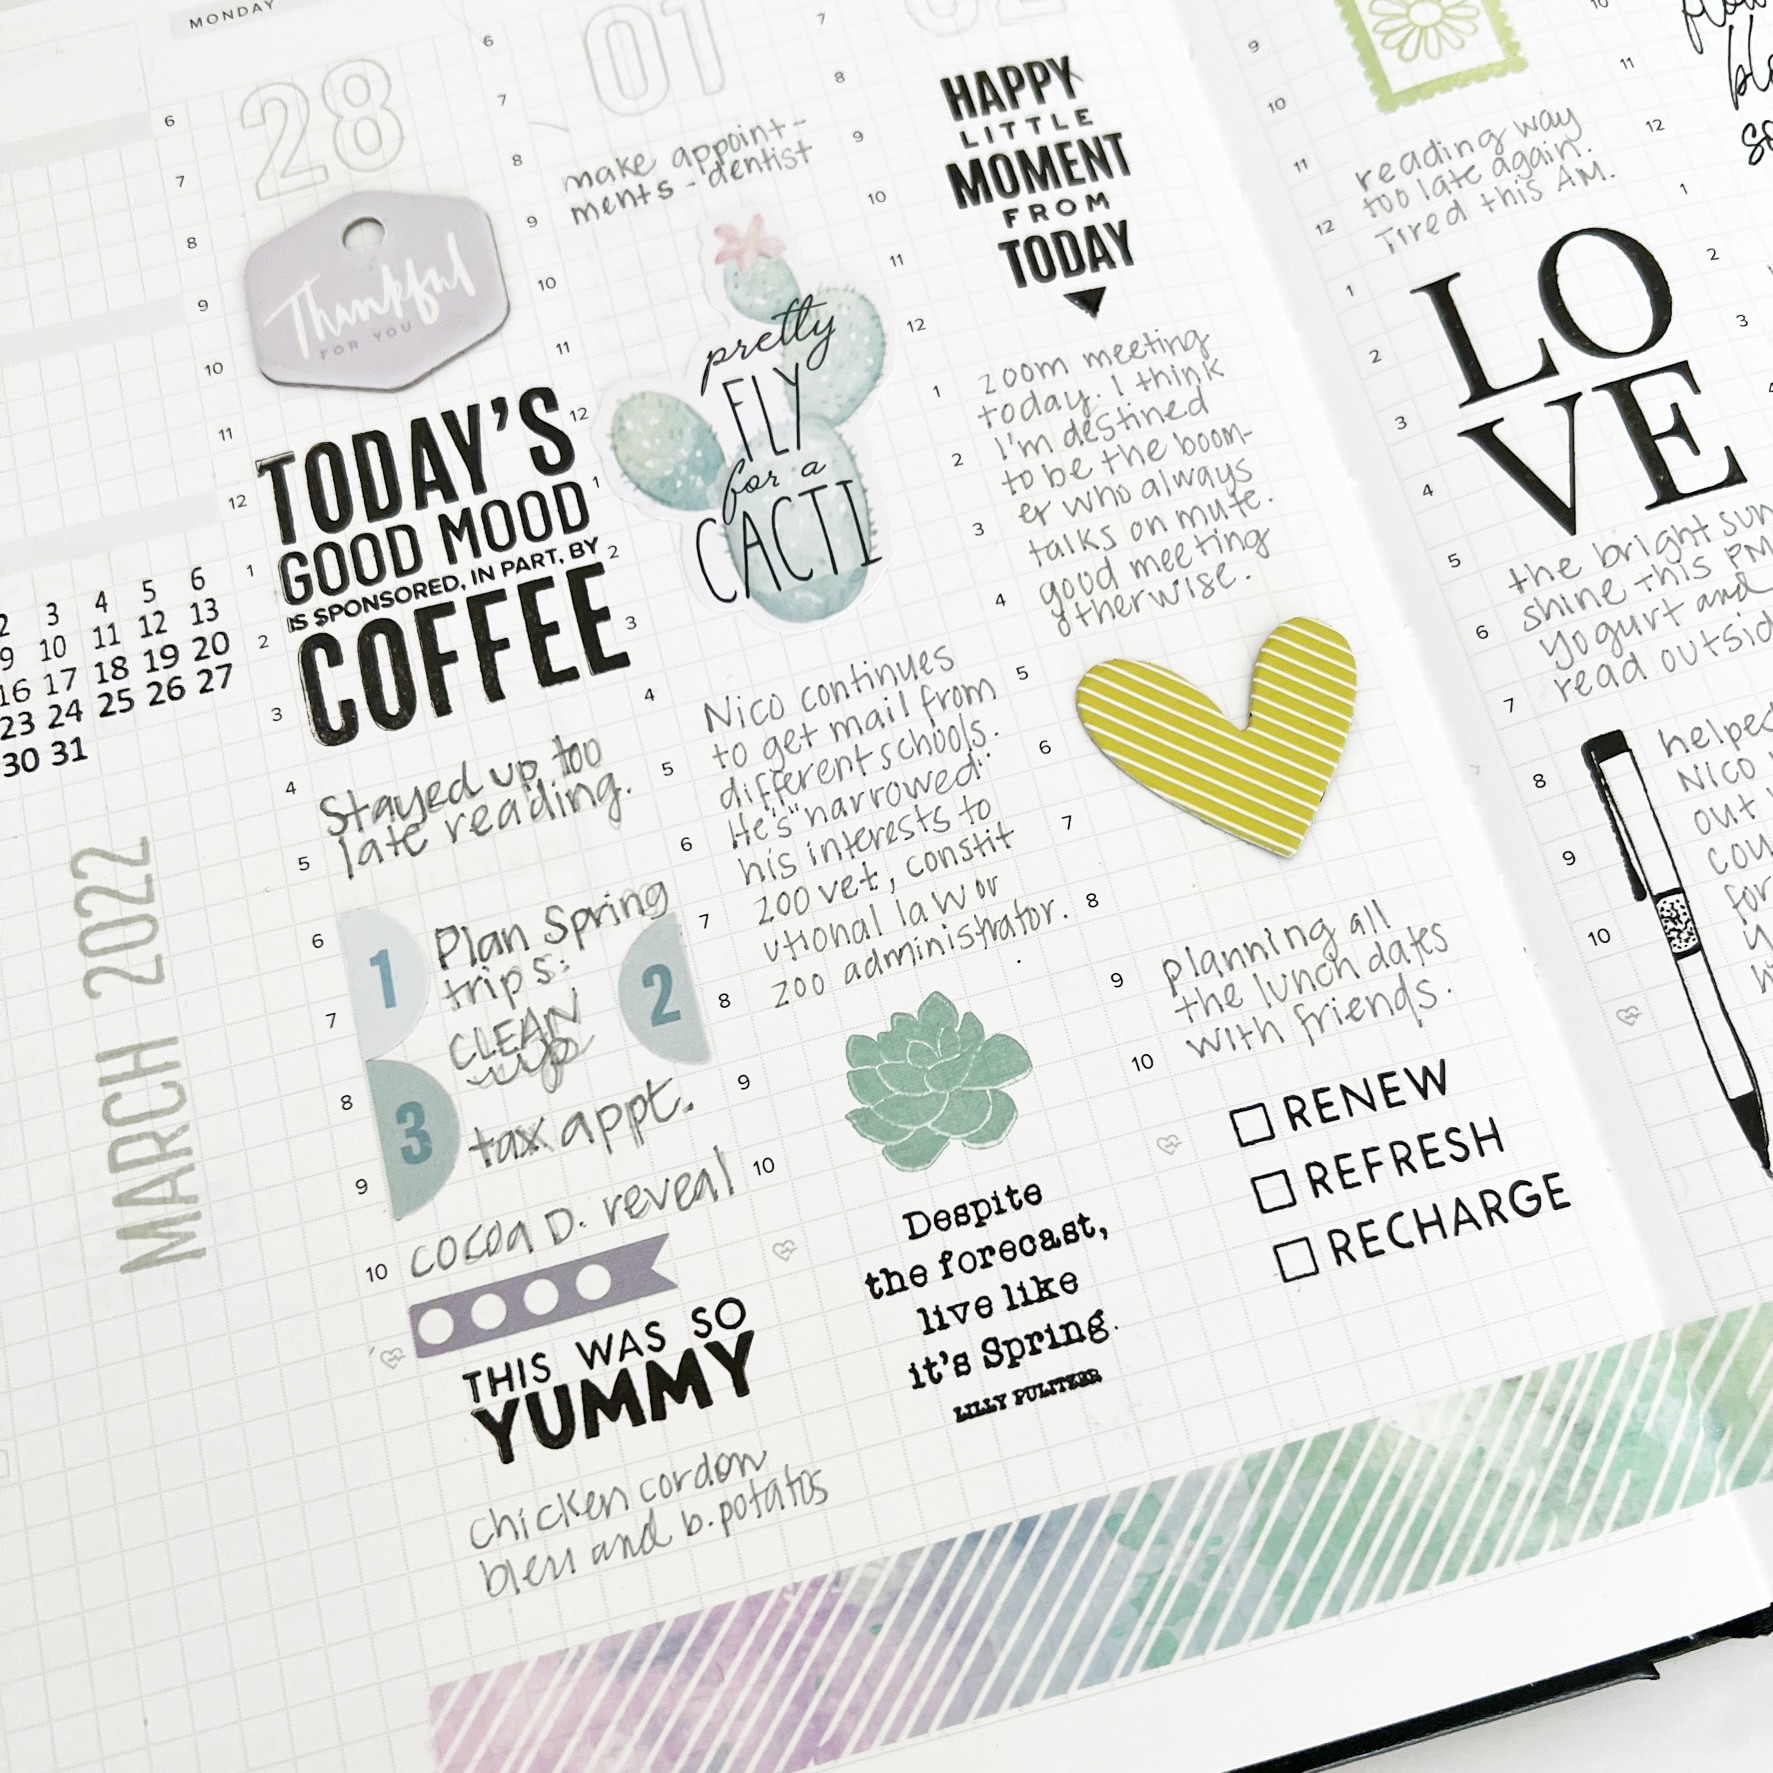 MONDAY
28
Thankful
FOR YOU
TODAY'S
GOOD MOOD
IS SPONSORED, IN PART, BY
COFFEE
Stayed up too
late reading.
1
Plan Spring
trips:
2
CLEAN
up
3
tax appt.
cocoa D. reveal
THIS WAS SO
YUMMY
chicken cordon
bleu and b. potatos
2 3 4 5 6
9 10 11 12 13
16 17 18 19 20
23 24 25 26 27
30 31
MARCH 2022
6
7
8
9
10
11
12
1
2
3
4
5
6
7
8
9
10
01
make appoint-
ments - dentist
pretty
FLY
for a
CACTI
Nico continues
to get mail from
different schools.
He's "narrowed"
his interests to
zoo vet, constit
utional law or
zoo administrator.
Despite
the forecast,
live like
it's Spring.
LILLY PULITZER
6
7
8
9
10
11
12
1
2
3
4
5
6
7
8
9
10
02
HAPPY
LITTLE
MOMENT
FROM
TODAY
zoom meeting
today. I think
I'm destined
to be the boom-
er who always
talks on mute.
good meeting
otherwise.
planning all
the lunch dates
with friends.
RENEW
REFRESH
RECHARGE
7
8
9
10
11
12
1
2
3
4
5
6
7
8
9
10
reading way
too late again.
Tired this AM.
LO
VE
the bright sun
shine this PM
yogurt and
read outsid
9
10
11
12
1
2
3
4
5
6
7
8
9
10
helped
Nico
out
cou
for
10
11
12
1
2
3
4